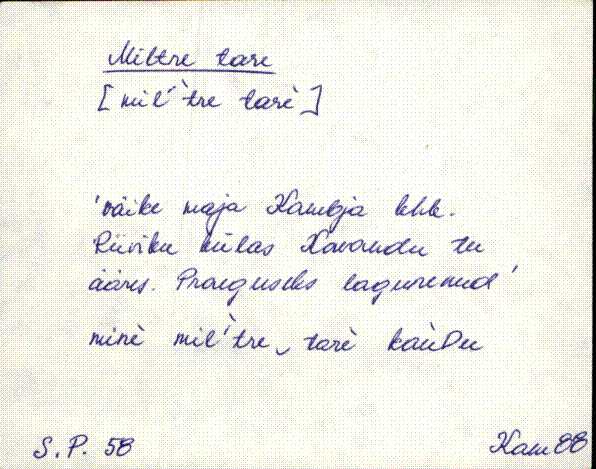 Miltre tare
[mil´`tre tarè]
'väike maja Kambja khk.
Riiviku külas Kavandu tee
ääres. Praeguseks lagunenud'
minè mil´`tre tarè kàuDu
S.P. 58
Kam 88